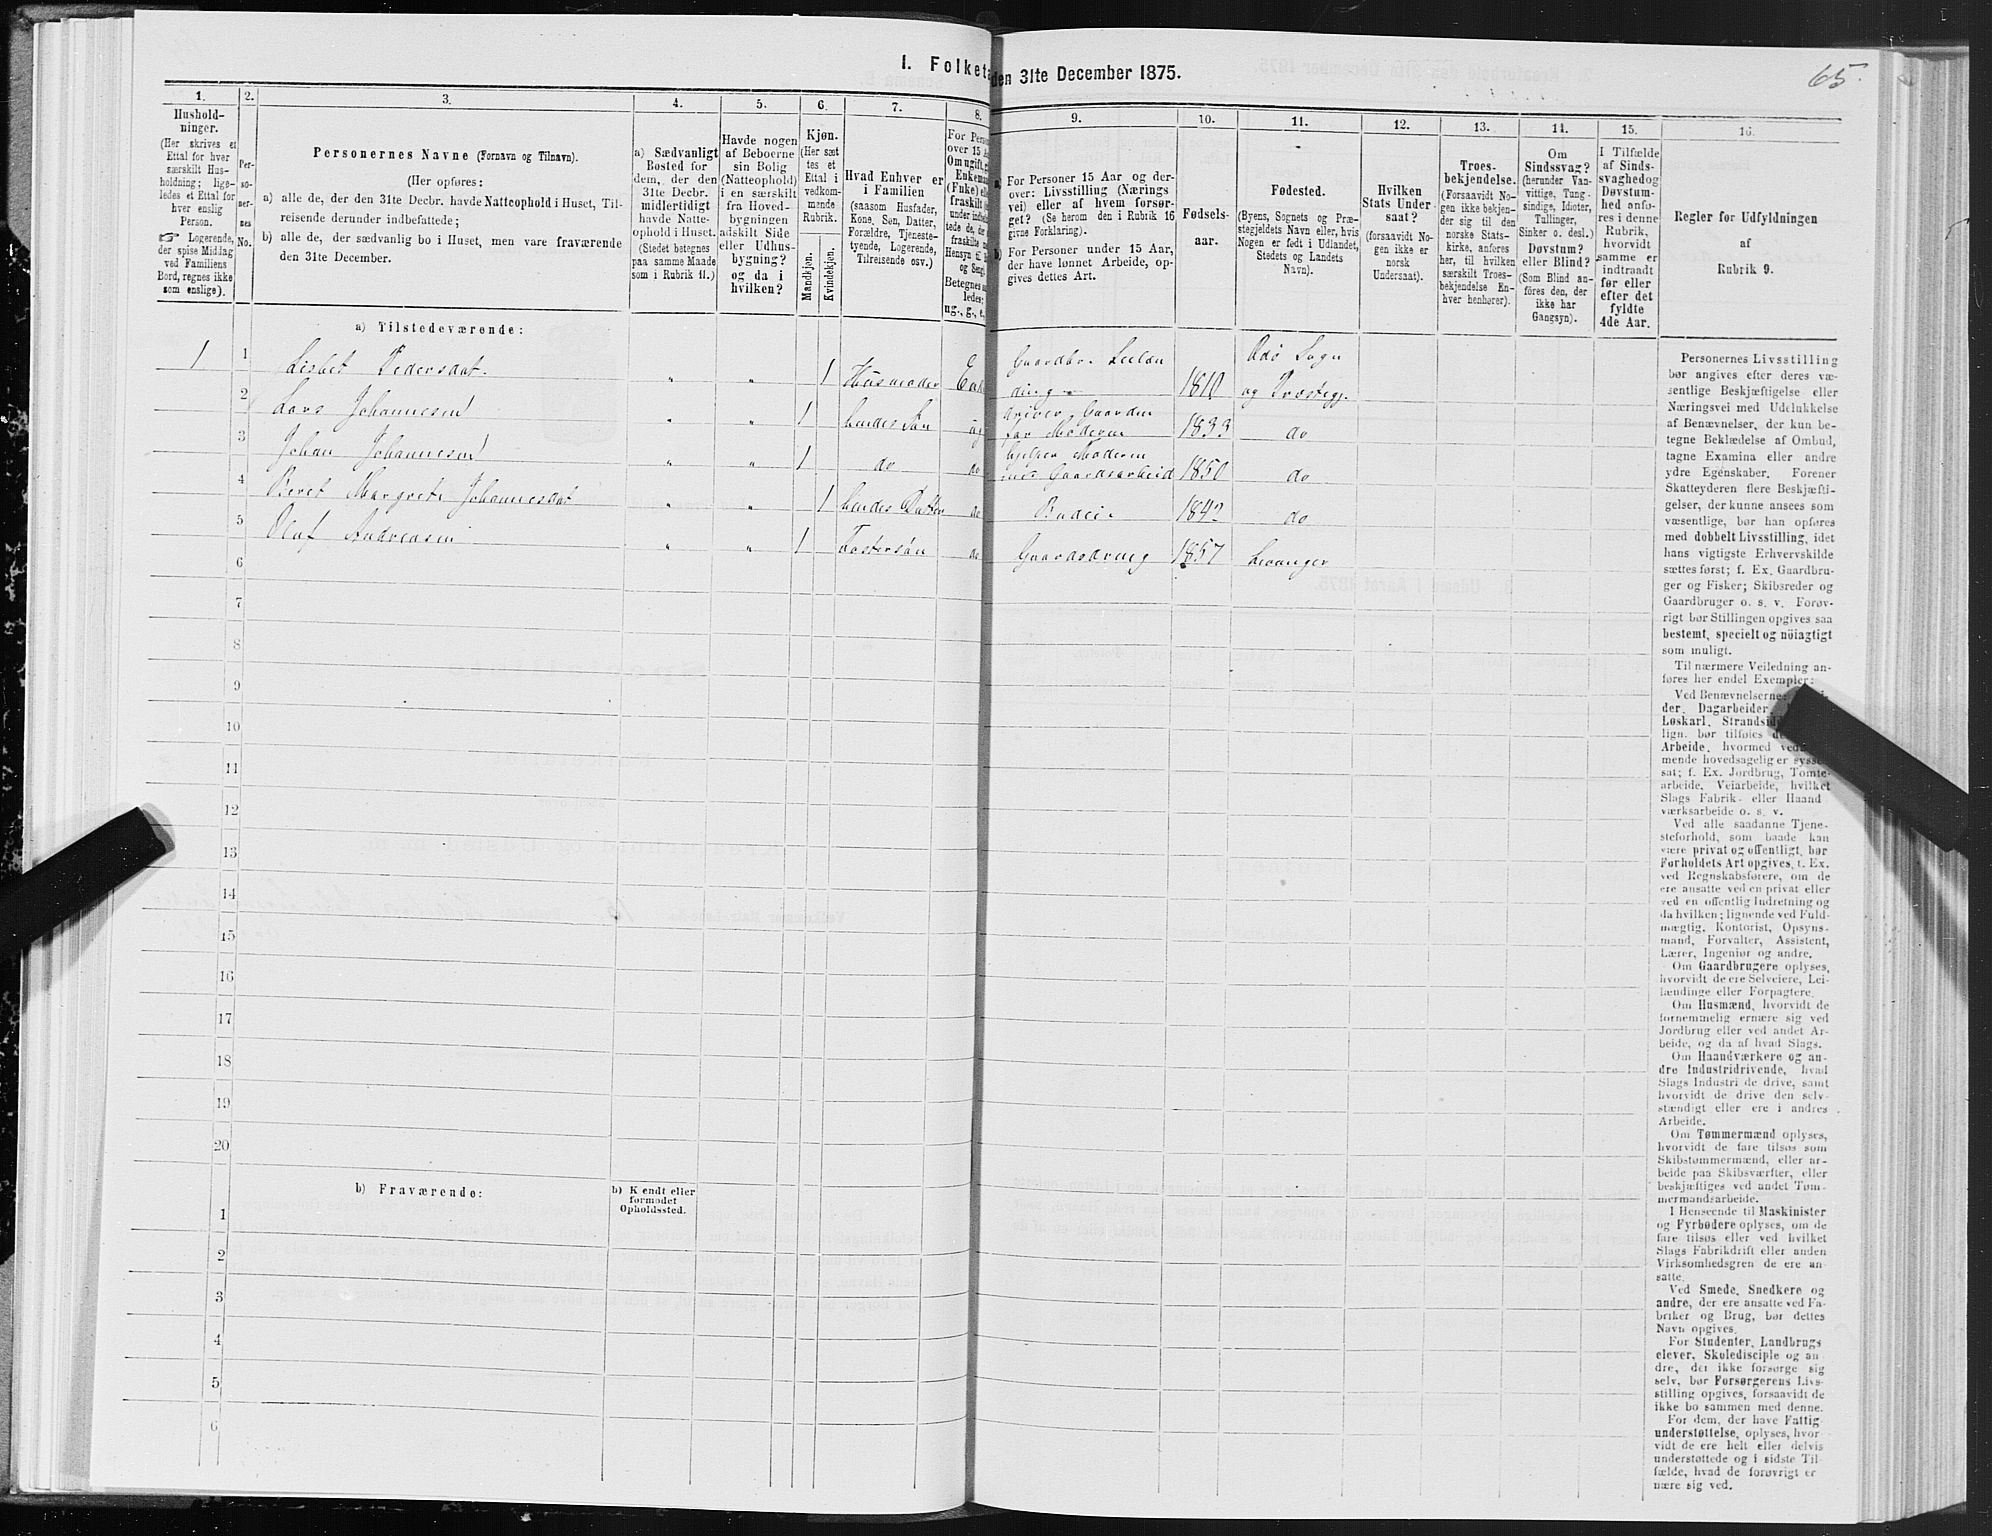 I. Folketæ
den 31te December 1875.
65
1.
2.
3.
4.
5.
6.
7.
8.
9.
10.
11.
12.
13.
14.
15.
16.
Hushold-
ninger.
(Her skrives et
Ettal for hver
særskilt Hus-
holdning; lige-
ledes et Ettal for
hver enslig
Person.
☞ Logerende,
der spise Middag
ved Familiens
Bord, regnes ikke
som enslige).
Per-
so-
ner-
nes
No.
Personernes Navne (Fornavn og Tilnavn).
(Her opføres:
a) alle de, der den 31te Decbr. havde Natteophold i Huset, Til-
reisende derunder indbefattede;
b) alle de, der sædvanlig bo i Huset, men vare fraværende
den 31te December.
a) Sædvanligt
Bosted for
dem, der den
31te Decbr.
midlertidigt
havde Natte-
ophold i Huset.
(Stedet betegnes
paa samme Maade
som i Rubrik 11.)
Havde nogen
af Beboerne
sin Bolig
(Natteophold)
i en særskilt
fra Hoved-
bygningen
adskilt Side
eller Udhus-
bygning?
og da i
hvilken?
Kjøn.
(Her sæt
tes et
Ettal i
vedkom-
mende
Rubrik.
Mandkjøn.
Kvindekjøn.
Hvad Enhver er
i Familien
(saasom Husfader,
Kone, Søn, Datter,
Forældre, Tjeneste-
tyende, Logerende,
Tilreisende osv.)
For Person
over 15 Aa
Om ugift, g
Enkema
(Enke) ell
fraskilt
under indb
tede de, d
fraskilte
Hensyn til
og Seng
Betegnes
ledes:
ug., g., e.,
a) For Personer 15 Aar og der-
over: Livsstilling (Nærings
vei) eller af hvem forsør-
get? (Se herom den i Rubrik 16
givne Forklaring).
b) For Personer under 15 Aar,
der have lønnet Arbeide, op-
gives dettes Art.
Fødsels-
aar.
Fødested.
(Byens, Sognets og Præ-
stegjeldets Navn eller, hvis
Nogen er født i Udlandet,
Stedets og Landets
Navn).
Hvilken
Stats Under-
saat?
(forsaavidt No-
gen ikke er
norsk
Undersaat).
Troes-
bekjendelse.
(Forsaavidt No-
gen ikke bekjen-
der sig til den
norske Stats-
kirke, anføres
her, til hvilken
særskilt Troes-
bekjendelse En-
hver henhører).
Om
Sindssvag?
(herunder Van-
vittige, Tung-
sindige, Idioter,
Tullinger,
Sinker o. desl.)
Døvstum?
eller Blind?
(Som Blind an-
føres den, der
ikke har
Gangsyn).
I Tilfælde
af Sinds-
svaghed og
Døvstum-
hed anfø-
res i denne
Rubrik,
hvorvidt
samme er
indtraadt
før eller
efter det
fyldte
4de Aar.
Regler for Udfyldningen
af
Rubrik 9.
a) Tilstedeværende:
1 1 Lisbet Pedersdat. " " 1 Husmoder Enke Gaardbr. Leilæn ding 1810 Adø Sogn og Præstegj.
2 Lars Johannesen " " 1 hendes Søn ug driver Gaarden for Moderen 1833 do
3 Johan Johannesen " " 1 do do hjelper Moderen med Gaardsarbeid 1850 do
4 Beret Margrete Johannesdat " " 1 hendes Datter do Budeie 1843 do
5 Olaf Andreasen " " 1 Fostersøn do Gaardsdreng 1857 Levanger
6
7
8
9
10
11
12
13
14
15
16
17
18
19
20
b) Fraværende:
b) Kendt eller
formodet
Opholdssted.
1
2
3
4
5
6
Personernes Livsstilling
bør angives efter deres væ-
sentlige Beskjæftigelse eller
Næringsvei med Udelukkelse
af Benævnelser, der kun be-
tegne Beklædelse af Ombud,
tagne Examina eller andre
ydre Egenskaber. Forener
Skatteyderen flere Beskjæfti-
gelser, der kunne ansees som
væsentlige, bør han opføres
med dobbelt Livsstilling, idet
hans vigtigste Erhvervskilde
sættes først; f. Ex. Gaardbru-
ger og Fisker; Skibsreder og
Gaardbruger o. s. v. Forøv-
rigt bør Stillingen opgives saa
bestemt, specielt og nøiagtigt
som muligt.
Til nærmere Veiledning an-
føres her endel Exempler:
Ved Benævnelserne:
der, Dagarbeider,
Løskarl, Strandsid
lign. bør tilføies
Arbeide, hvormed ved
mende hovedsagelig er sysse-
sat; f. Ex. Jordbrug, Tomte-
arbeide, Veiarbeide, hvilket
Slags Fabrik- eller Haand
værksarbeide o. s. v.
Ved alle saadanne Tjene-
steforhold, som baade kan
være privat og offentligt, bør
Forholdets Art opgives, f. Ex.
ved Regnskabsførere, om de
ere ansatte ved en privat eller
ved en offentlig Indretning og
da hvilken; lignende ved Fuld-
mægtig, Kontorist, Opsyns-
mand, Forvalter, Assistent,
Lærer, Ingeniør og andre.
Om Gaardbrugere oplyses,
hvorvidt de ere Selveiere, Lei-
lændinge eller Forpagtere.
Om Husmænd, hvorvidt de
fornemmelig ernære sig ved
Jordbrug eller ved andet Ar-
beide, og da af hvad Slags.
Om Haandværkere og an-
dre Industridrivende, hvad
Slags Industri de drive, samt
hvorvidt de drive den selv-
stændigt eller ere i andres
Arbeide.
Om Tømmermænd oplyses,
hvorvidt de fare tilsøs som
Skibstømmermænd, eller ar-
beide paa Skibsværfter, eller
beskjæftiges ved andet Tøm-
mermandsarbeide.
I Henseende til Maskinister
og Fyrbødere oplyses, om de
fare tilsøs eller ved hvilket
Slags Fabrikdrift eller anden
Virksomhedsgren de ere an-
satte.
Ved Smede, Snedkere og
andre, der ere ansatte ved Fa-
briker og Brug, bør dettes
Navn opgives.
For Studenter, Landbrugs
elever, Skoledisciple og an
dre, der ikke forsørge sig
selv, bør Forsørgerens Livs-
stilling opgives, forsaavidt de
ikke bo sammen med denne.
For dem, der have Fattig-
understøttelse, oplyses, hvor-
vidt de ere helt eller delvis
understøttede og i sidste Til-
fælde, hvad de forøvrigt er
nære sig ved.